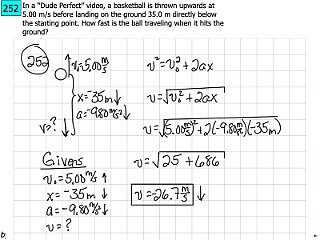 252 In a "Dude Perfect" video, a basketball is thrown upwards at
5.00 m/s before landing on the ground 35.0 m directly below
the starting point. How fast is the ball traveling when it hits the
ground?
252
v₀=5.00 m/s
x=-35m↓
a=-9.80 m/s²↓
v=?
v²=v₀²+2ax
v=√v₀²+2ax
v=√(5.00 m/s)²+2(-9.80 m/s²)(-35m)
v=√25+686
v=-26.7 m/s ↓
Givens
v₀=5.00 m/s ↑
x=-35m ↓
a=-9.80 m/s² ↓
v=?